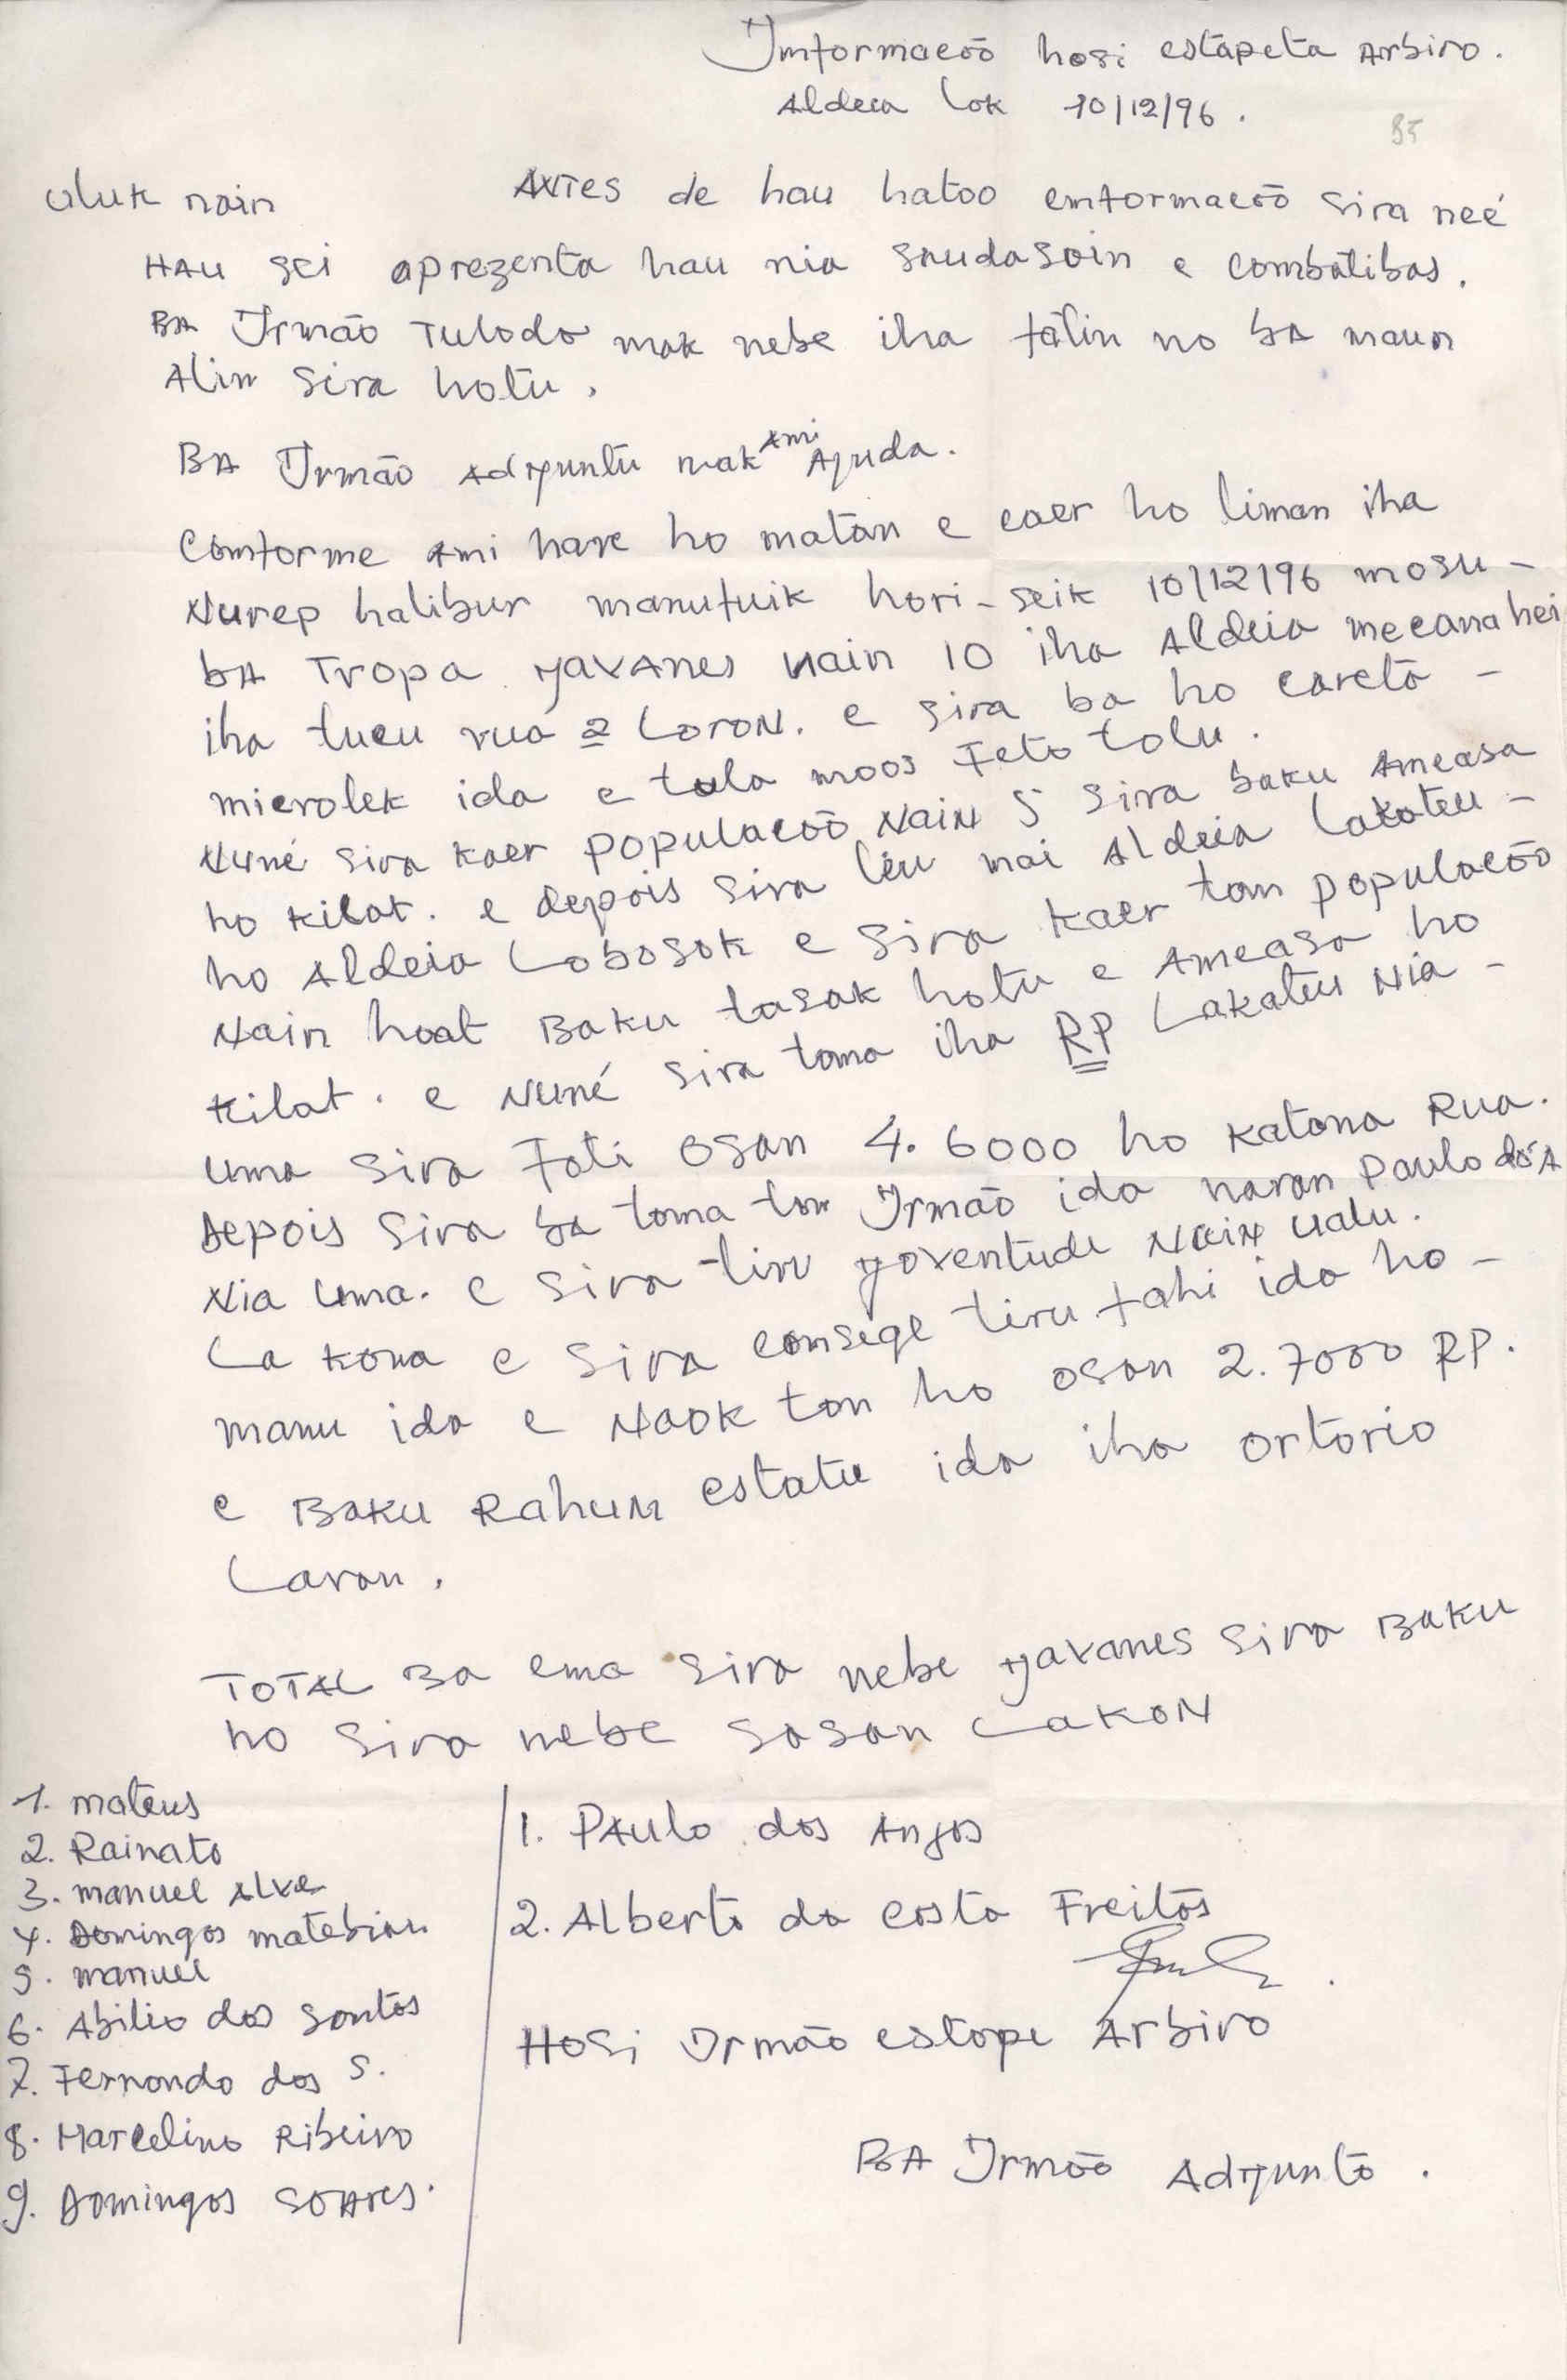 Imformacõõ hosi estapeta Arbiro.
Aldeia Lok 10/12/96.
35
uluk nain Antes de hau hatoo emformacõõ sira neé
HAU sei aprezenta hau nia saudasoin e combatibas.
BA Irmão Tulodo mak nebe iha fatin no bA maun
Alin sira hotu.
BA Irmão Adijuntu mak Ami Ajuda.
Comforme Ami hare ho matan e caer ho liman iha
Nurep halibur manufuik hori-seik 10/12/96 mosu-
bA Tropa javanes nain 10 iha Aldeia mecanahei
iha tucu rua 2 Loron. e sira ba ho careta-
microlek ida e tula moos Feto tolu.
Nuné sira kaer populacõõ Nain 5 sira baku Ameasa
ho kilat. e depois sira leu mai Aldeia Lakateu-
ho Aldeia Lobosok e sira kaer tan populacõõ
Nain hoat Baku tasak hotu e Ameasa ho
kilat. e Nuné sira tama iha RP Lakateu Nia-
uma sira Foti osan 4.6000 ho katana Rua.
Depois sira ba tama tan Irmão ida naran Paulo do's A
Nia uma. e sira tiru joventude Nain ualu.
La kona e sira consege tiru fahi ida ho-
manu ida e Naok tan ho osan 2.7000 RP.
e Baku Rahun estatu ida iha ortorio
Laran.
TOTAL Ba ema sira nebe javanes sira Baku
ho sira nebe sasan LaKON
1. mateus
2. Rainato
3. manuel Alve
4. Domingos matebian
5. manuel
6. Abilio dos santos
7. Fernando dos S.
8. Marcelino Ribeiro
9. Domingos SOAres.
1. PAulo dos Anjos
2. Alberto da costa Freitas
HOSi Irmão estape Arbiro
BA Irmõo Adijunto.